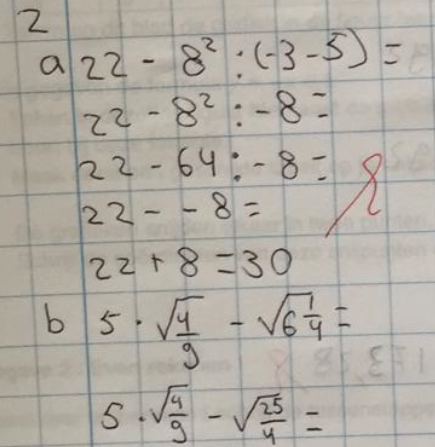 2
a 22 - 8² : (-3-5) =
22 - 8² : -8 =
22 - 64 : -8 =
22 - - 8 =
22 + 8 = 30
b 5 · √(4/9) - √(6 1/4) =
5 · √(4/9) - √(25/4) =